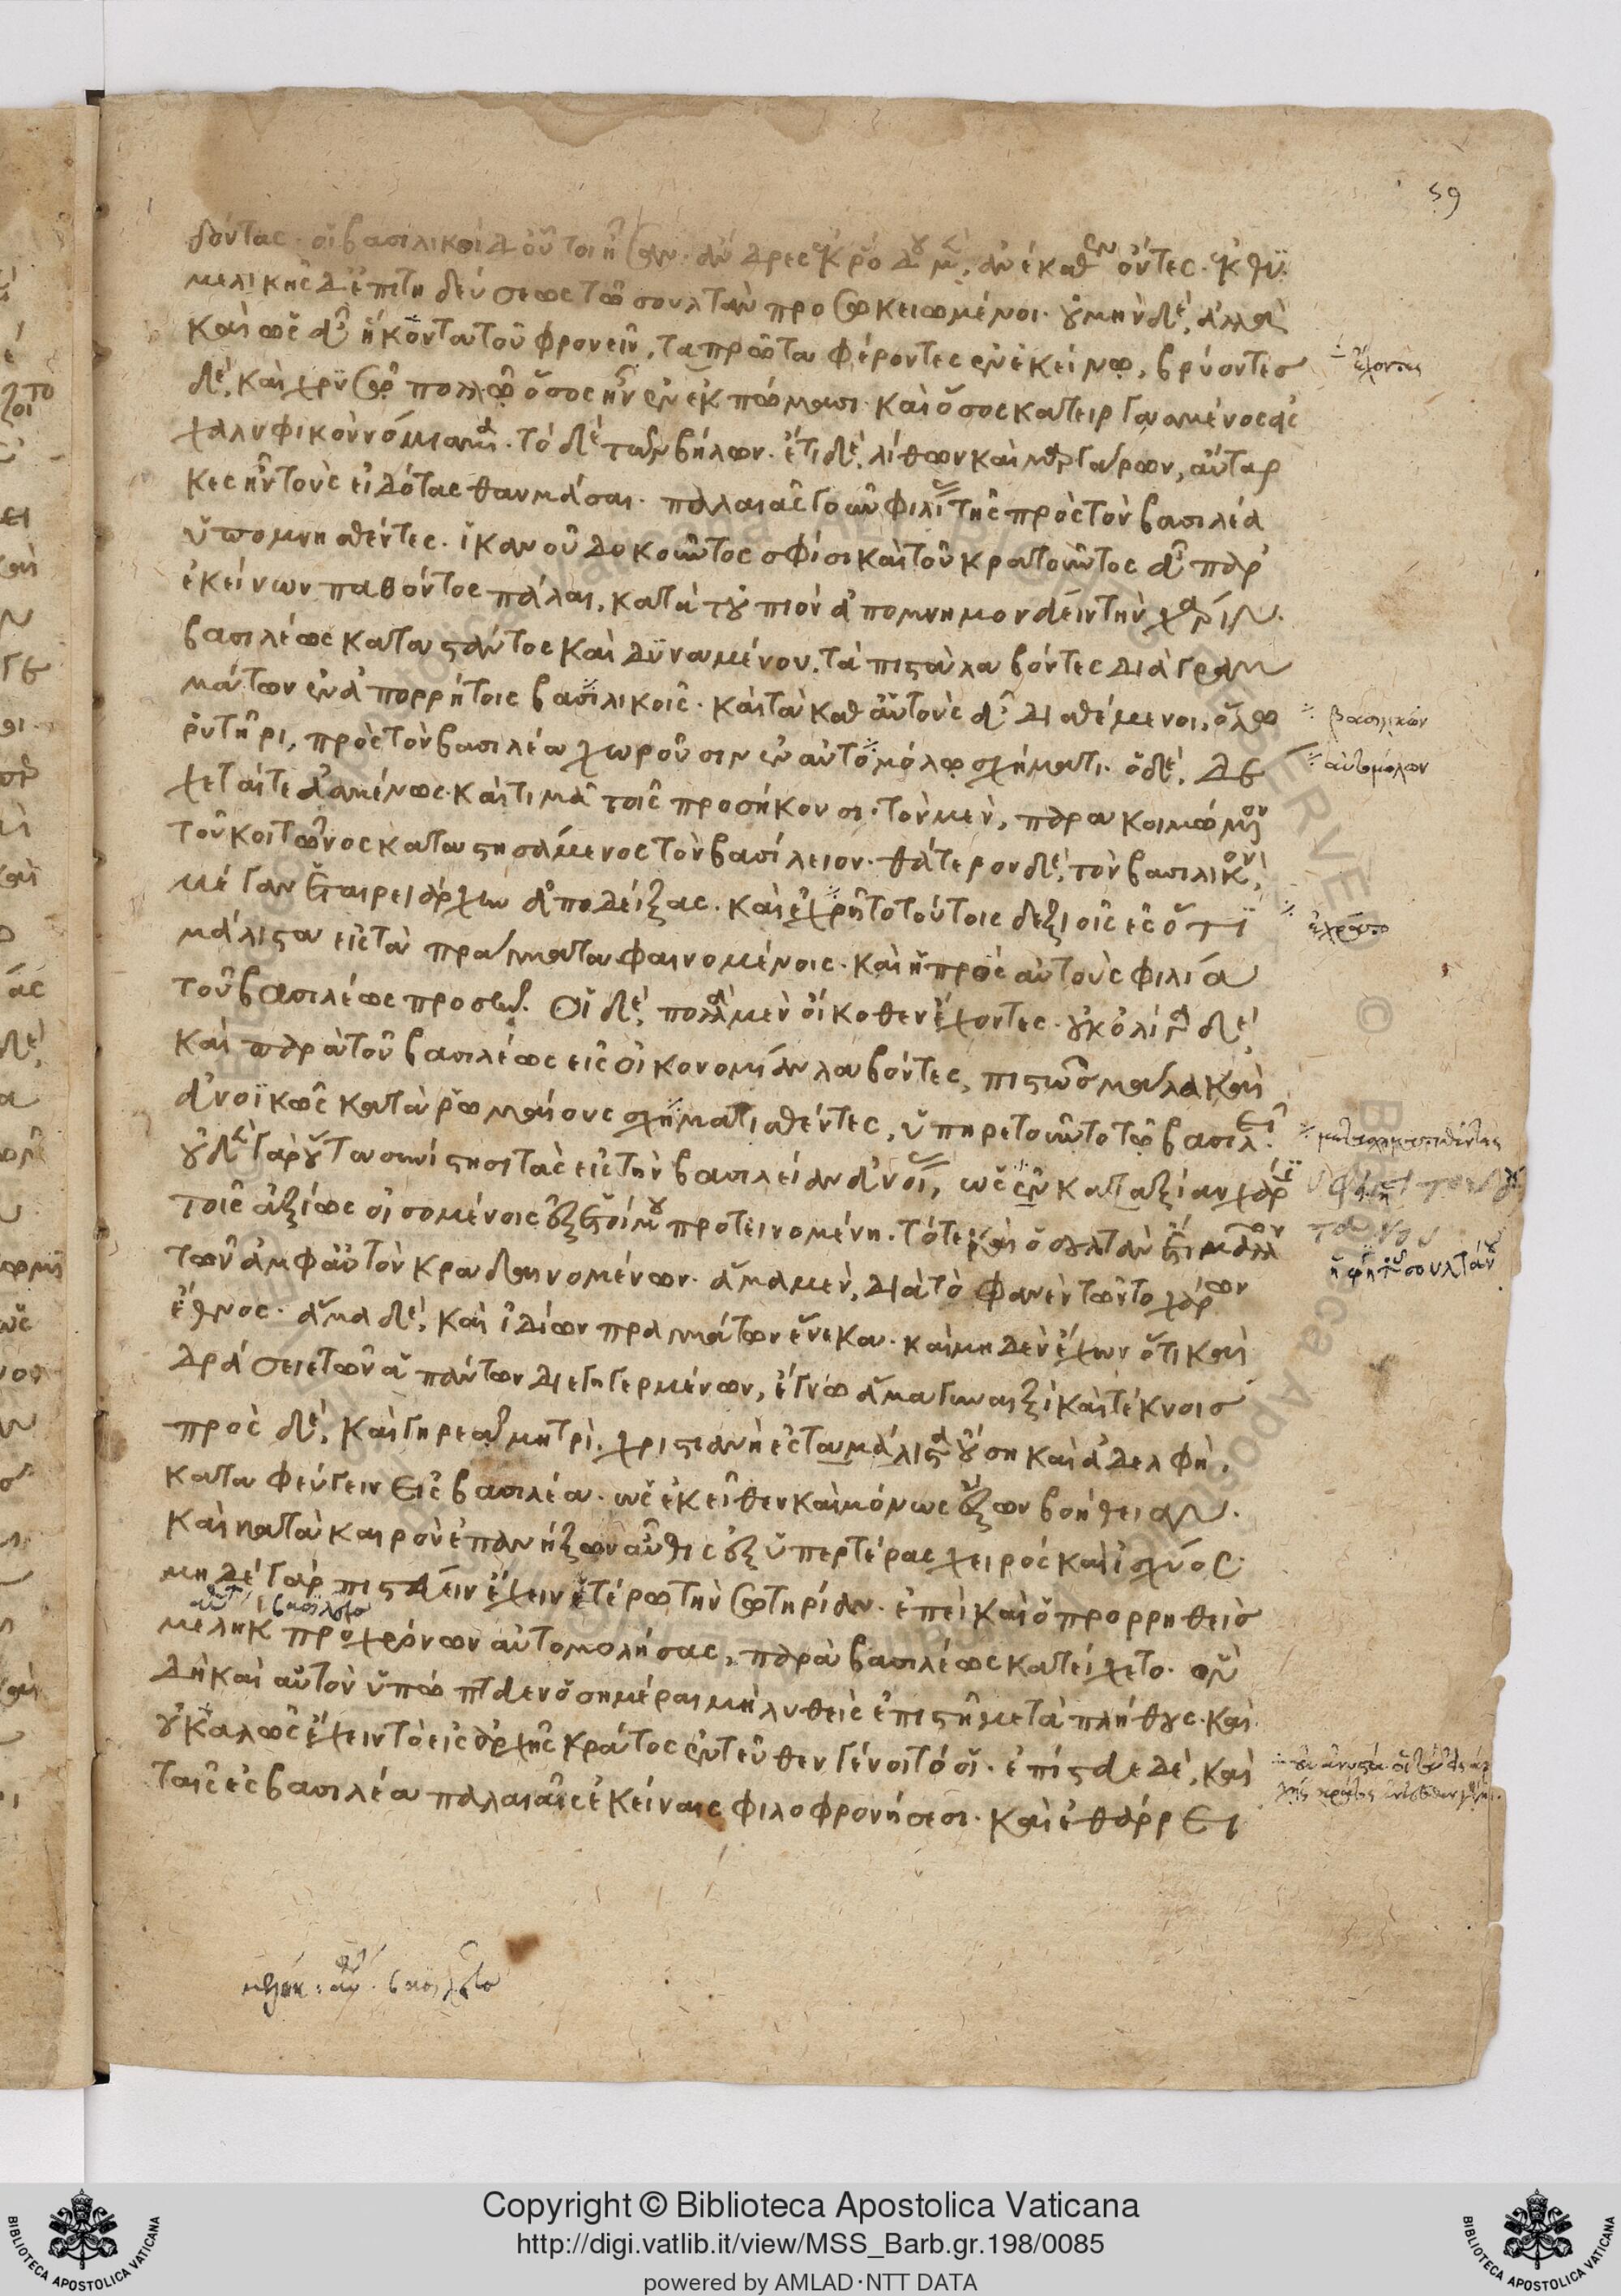 59
δόντας. οἱ βασιλικοὶ δ οὗτοι ἦσαν. ἄνδρες ἐκ ῥόδου μὲν, ἀνέκαθεν ὄντες. ἐκ θυ
μελικῆς δ ἐπιτηδεύσεως τῶ σουλτὰν προσωκειωμένοι. οὐ μὴν δὲ, ἀλλὰ
καὶ ὡς εὖ ἥκοντα τοῦ φρονεῖν, τα πρῶτα φέροντες ἐν ἐκείνω, βρύοντες
ἔχοντες
δὲ, καὶ χρυσῶ πολλῶ ὅσος ἦν ἐν ἐκπώμασι. καὶ ὅσος κατειργασμένος εἰς
χαλυφικὸν νόμισμα. τὸ δὲ τῶν βήλων. ἔτι δὲ, λίθων καὶ μαργάρων, αὔταρ
κες ἦν τοὺς εἰδότας θαυμάσαι. παλαιᾶς γοῦν φιλίας τῆς πρὸς τὸν βασιλέα
ὑπομνησθέντες. ἱκανοῦ δοκοῦντος σφίσι καὶ τοῦ κρατοῦντος εὖ παρ
ἐκείνων παθόντος πάλαι, κατὰ τοὐπιὸν ἀπομνημονεύειν τὴν χάριν.
βασιλέως καταστάντος καὶ δυναμένου. τὰ πιστὰ λαβόντες διὰ γραμ
μάτων ἐν ἀπορρήτοις βασιλικοῖς. καὶ τὰ καθ αὑτοὺς εὖ διαθέμενοι, ὅλω
βασιλικῶν
ῥυτῆρι, πρὸς τὸν βασιλέα χωροῦσιν ἐν αὐτομόλω σχήματι. ὁ δὲ, δέ
αὐτομόλων
χεταί τε ἀσμένως. καὶ τιμᾶ τοῖς προσήκουσι. τὸν μὲν, παρακοιμώμενον
τοῦ κοιτῶνος καταστησάμενος τὸν βασίλειον. θάτερον δὲ, τὸν βασιλικὸν,
μέγαν ἑταιρειάρχην ἀποδείξας. καὶ ἐχρῆτο τούτοις δεξιοῖς ἐς ὅτι
ἐχρᾶτο
μάλιστα εἰς τὰ πράγματα φαινομένοις. καὶ ἡ πρὸς αὐτοὺς φιλία
τοῦ βασιλέως προσῆν. Οἱ δὲ, πολλὰ μὲν οἴκοθεν ἔχοντες. οὐκ ὀλίγα δὲ,
καὶ παρὰ τοῦ βασιλέως εἰς οἰκονομίαν λαβόντες, πιστῶς μάλα καὶ
εὐνοϊκῶς κατὰ ῥωμαίους σχηματισθέντες, ὑπηρετοῦντο τῶ βασιλεῖ.
μετασχηματισθέντες
τοῖς ἀξίως οἰσομένοις ἐξ ἑτοίμου προτεινομένη. τότε καὶ ὁ σουλτὰν ἔτι μᾶλλον
τῶν ἀμφ αὐτὸν κραδαινομένων. ἅμα μὲν, διὰ τὸ φανὲν τῶν τοχάρων
ἡ φήμη τοῦ σουλτάνου
ἔθνος. ἅμα δὲ, καὶ ἰδίων πραγμάτων ἕνεκα. καὶ μηδὲν ἔχων ὅτι καὶ
δράσειε τῶν ἁπάντων διεγηγερμένων, ἔγνω ἅμα γυναιξὶ καὶ τέκνοις
πρὸς δὲ, καὶ γηραιᾶ μητρὶ, χριστιανῆ ἐς τα μάλιστα οὔση καὶ ἀδελφῆ,
καταφεύγειν εἰς βασιλέα. ὡς ἐκεῖθεν καὶ μόνως ἕξων βοήθειαν.
καὶ κατὰ καιρὸν ἐπανήξων αὖθις ἐξ ὑπερτέρας χειρός καὶ ἰσχύος.
μηδὲ γὰρ πιστεύειν ἔχειν ἑτέρω τὴν σωτηρίαν. ἐπεὶ καὶ ὁ προρρηθεὶς
μελὴκ πρὸ χρόνων αὐτομολήσας, παρὰ βασιλέως κατείχετο. ὃν
δὴ καὶ αὐτὸν ὑπώπτευεν ὁσημέραι μὴ λυθεὶς ἐπιστῆ μετὰ πλήθους. καὶ
οὐ καλῶς ἔχειν τὸ εἰς ἀρχῆς κράτος ἐντεῦθεν γένοιτό οἱ. ἐπίστευε δὲ, καὶ
ταῖς ἐς βασιλέα παλαιαῖς ἐκείναις φιλοφρονήσεσι. καὶ ἐθάρρει
Copyright © Biblioteca Apostolica Vaticana
http://digi.vatlib.it/view/MSS_Barb.gr.198/0085
powered by AMLAD·NTT DATA
BIBLIOTECA APOSTOLICA VATICANA
BIBLIOTECA APOSTOLICA VATICANA